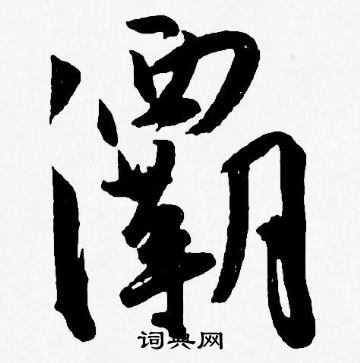 灞
词典网